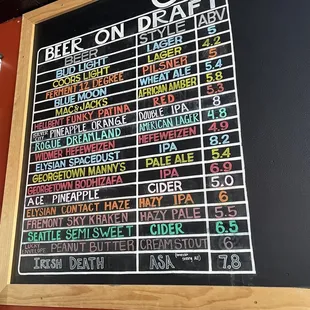 BEER ON DRAFT
BEER STYLE ABV
BUD LIGHT LAGER 5
COORS LIGHT LAGER 4.2
FERMENT 32 DEGREE PILSNER 5
BLUE MOON WHEAT ALE 5.4
MAC & JACKS AFRICAN AMBER 5.8
HELLBENT FUNKY PATINA RED
PINEAPPLE ORANGE DOUBLE IPA 8
ROGUE DREAMLAND AMERICAN LAGER 4.8
WIDMER HEFEWEIZEN HEFEWEIZEN 4.9
ELYSIAN SPACEDUST IPA 8.2
GEORGETOWN MANNY'S PALE ALE 5.4
GEORGETOWN BODHIZAFA IPA 6.9
ACE PINEAPPLE CIDER 5.0
ELYSIAN CONTACT HAZE HAZY IPA 6
FREMONT SKY KRAKEN HAZY PALE 5.5
SEATTLE SEMI SWEET CIDER 6.5
PEANUT BUTTER CREAM STOUT 6
IRISH DEATH ASA 7.8